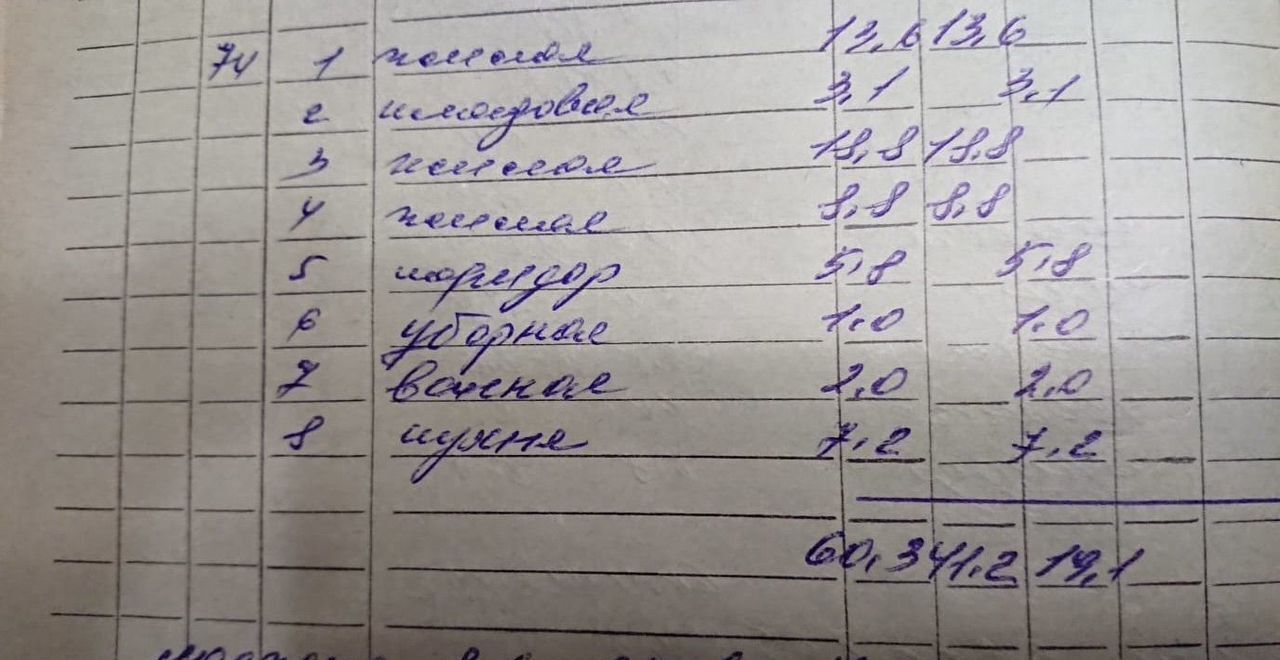 74 1 жилая 13,6 13,6
2 шкафовая 3,1 3,1
3 жилая 18,8 18,8
4 жилая 8,8 8,8
5 коридор 5,8 5,8
6 уборная 1.0 1.0
7 ванная 2,0 2,0
8 кухня 7,2 7,2
60,3 41,2 19,1